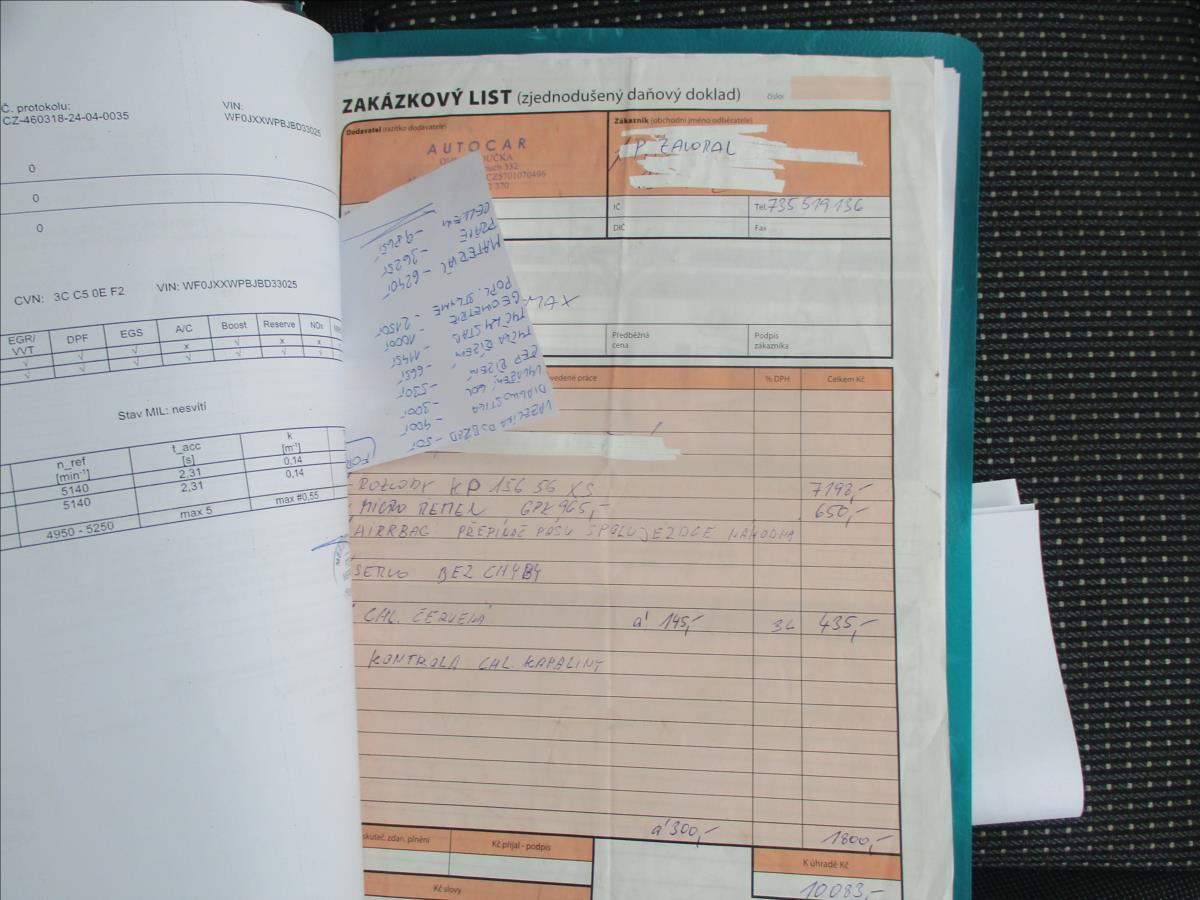 Č. protokolu:
CZ-460318-24-04-0035
VIN:
WF0JXXWPBJBD33025
0
0
0
CVN: 3C C5 0E F2 VIN: WF0JXXWPBJBD33025
EGR/VVT DPF EGS A/C Boost Reserve NOx
√ √ √ x √ x x
√ √ √ √ √ √ √
Stav MIL: nesvítí
n_ref [min⁻¹] t_acc [s] k [m⁻¹]
5140 2,31 0,14
5140 2,31 0,14
4950 - 5250 max 5 max #0,55
ZAKÁZKOVÝ LIST (zjednodušený daňový doklad)
číslo:
Dodavatel (razítko dodavatele)
AUTOCAR
332
CZ5701070496
370
Zákazník (obchodní jméno odběratele)
P. ZAVORAL
IČ
Tel. 735 519 136
DIČ
Fax
MAX
Předběžná cena
Podpis zákazníka
vedené práce % DPH Celkem Kč
FOR
DIAGNOSTIKA - 400,-
ČEP ŘÍZENÍ - 530,-
TYČKA ŘÍZENÍ - 665,-
TYČKY STAB - 1145,-
GEOMETRIE - 1000,-
- 2150,-
MATERIÁL - 6240,-
PRÁCE - 3625,-
CELKEM - 9865,-
ROZVODY KP 156 56 XS 7198,-
MICRO ŘEMEN 6PK 965,- 650,-
AIRRBAG PŘEPÍNAČ PÁSU SPOLUJEZDCE NÁHODNÁ
SERVO BEZ CHYBY
CHL. ČERVENÁ a' 145,- 3L 435,-
KONTROLA CHL. KAPALINY
a' 300,- 1800,-
skuteč. zdan. plnění
Kč přijal - podpis
K úhradě Kč
10083,-
Kč slovy